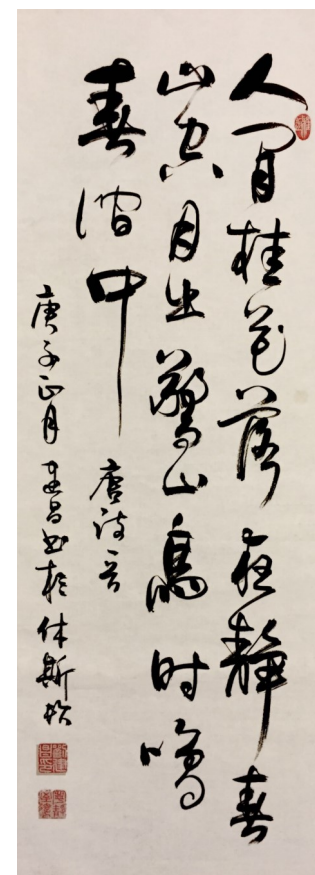 人閒桂花落夜靜春
山空月出驚山鳥时鳴
春澗中
唐诗一首
庚子正月建昌书於休斯頓